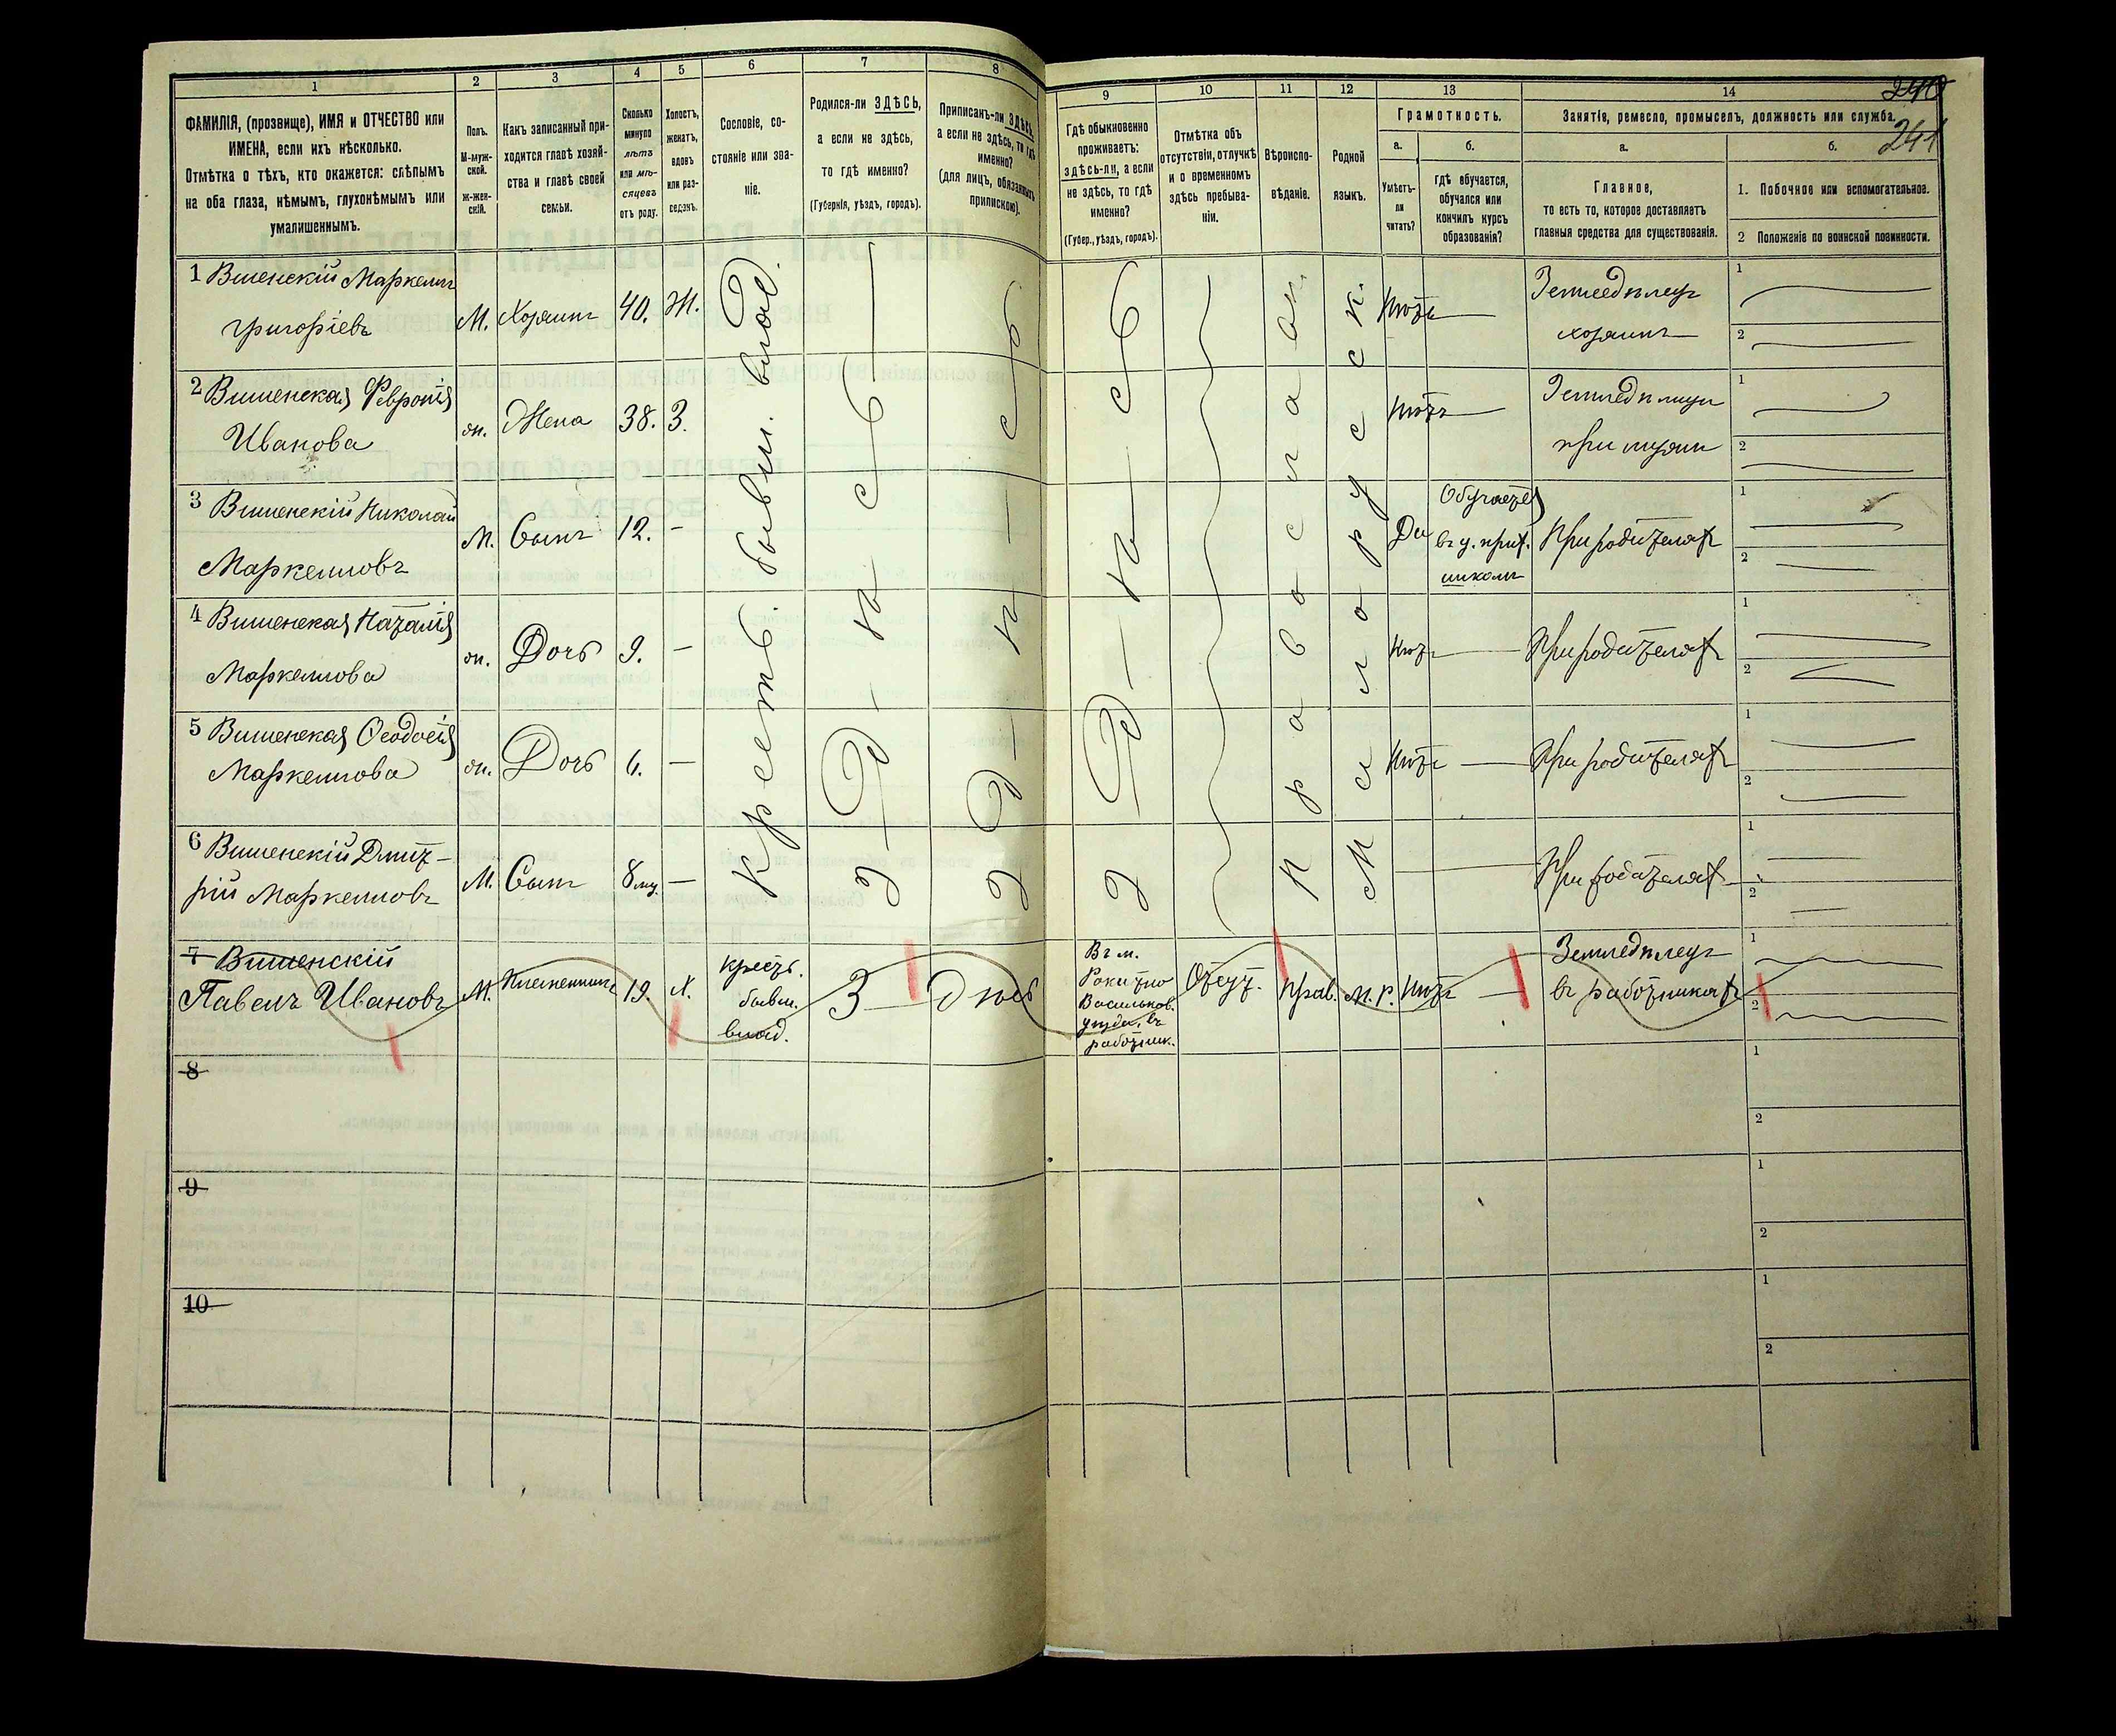 1 2 3 4 5 6 7 8 9 10 11 12 13 14
240
241
ФАМИЛІЯ, (прозвище), ИМЯ и ОТЧЕСТВО или
ИМЕНА, если ихъ нѣсколько.
Отмѣтка о тѣхъ, кто окажется: слѣпымъ
на оба глаза, нѣмымъ, глухонѣмымъ или
умалишеннымъ.
Полъ.
М-муж-
ской.
ж-жен-
скій.
Какъ записанный при-
ходится главѣ хозяй-
ства и главѣ своей
семьи.
Сколько
минуло
лѣтъ
или мѣ-
сяцевъ
отъ роду.
Холостъ,
женатъ,
вдовъ
или раз-
веденъ.
Сословіе, со-
стояніе или зва-
ніе.
Родился-ли ЗДѢСЬ,
а если не здѣсь,
то гдѣ именно?
(Губернія, уѣздъ, городъ).
Приписанъ-ли ЗДѢСЬ,
а если не здѣсь, то гдѣ
именно?
(для лицъ, обязанныхъ
припискою).
Гдѣ обыкновенно
проживаетъ:
здѣсь-ли, а если
не здѣсь, то гдѣ
именно?
(Губер., уѣздъ, городъ).
Отмѣтка объ
отсутствіи, отлучкѣ
и о временномъ
здѣсь пребыва-
ніи.
Вѣроиспо-
вѣданіе.
Родной
языкъ.
Грамотность.
а.
Умѣетъ-
ли
читать?
б.
гдѣ обучается,
обучался или
кончилъ курсъ
образованія?
Занятіе, ремесло, промыселъ, должность или служба.
а.
Главное,
то есть то, которое доставляетъ
главныя средства для существованія.
б.
1. Побочное или вспомогательное.
2 Положеніе по воинской повинности.
Крестьб. бывш. влад.
Здѣсь
Здѣсь
Здѣсь
Православн.
Малорусск.
1 Вишенскій Маркеллъ
Григоріевъ
М. Хозяинъ 40. Ж.
Нѣтъ
Земледѣлецъ
хозяинъ
1
2
2 Вишенская Февронія
Иванова
ж. Жена 38. З.
Нѣтъ
Земледѣлица
при мужѣ
1
2
3 Вишенскій Николай
Маркелловъ
М. Сынъ 12. -
Да
Обучается
въ ц. прих.
школѣ
При родителяхъ
1
2
4 Вишенская Наталія
Маркеллова
ж. Дочь 9. -
Нѣтъ
При родителяхъ
1
2
5 Вишенская Ѳеодосія
Маркеллова
ж. Дочь 6. -
Нѣтъ
При родителяхъ
1
2
6 Вишенскій Дмит-
рій Маркелловъ
М. Сынъ 8 мц. -
При родителяхъ
1
2
7 Вишенскій
Павелъ Ивановъ
М. Племянникъ 19. Х.
крестъ.
бывш.
влад.
З - дѣсь
Въ м.
Рокитно
Васильков.
уѣзда, въ
работник.
Отсут.
Прав.
м. р.
Нѣтъ
Земледѣлецъ
въ работникахъ
1
2
8
1
2
9
1
2
10
1
2